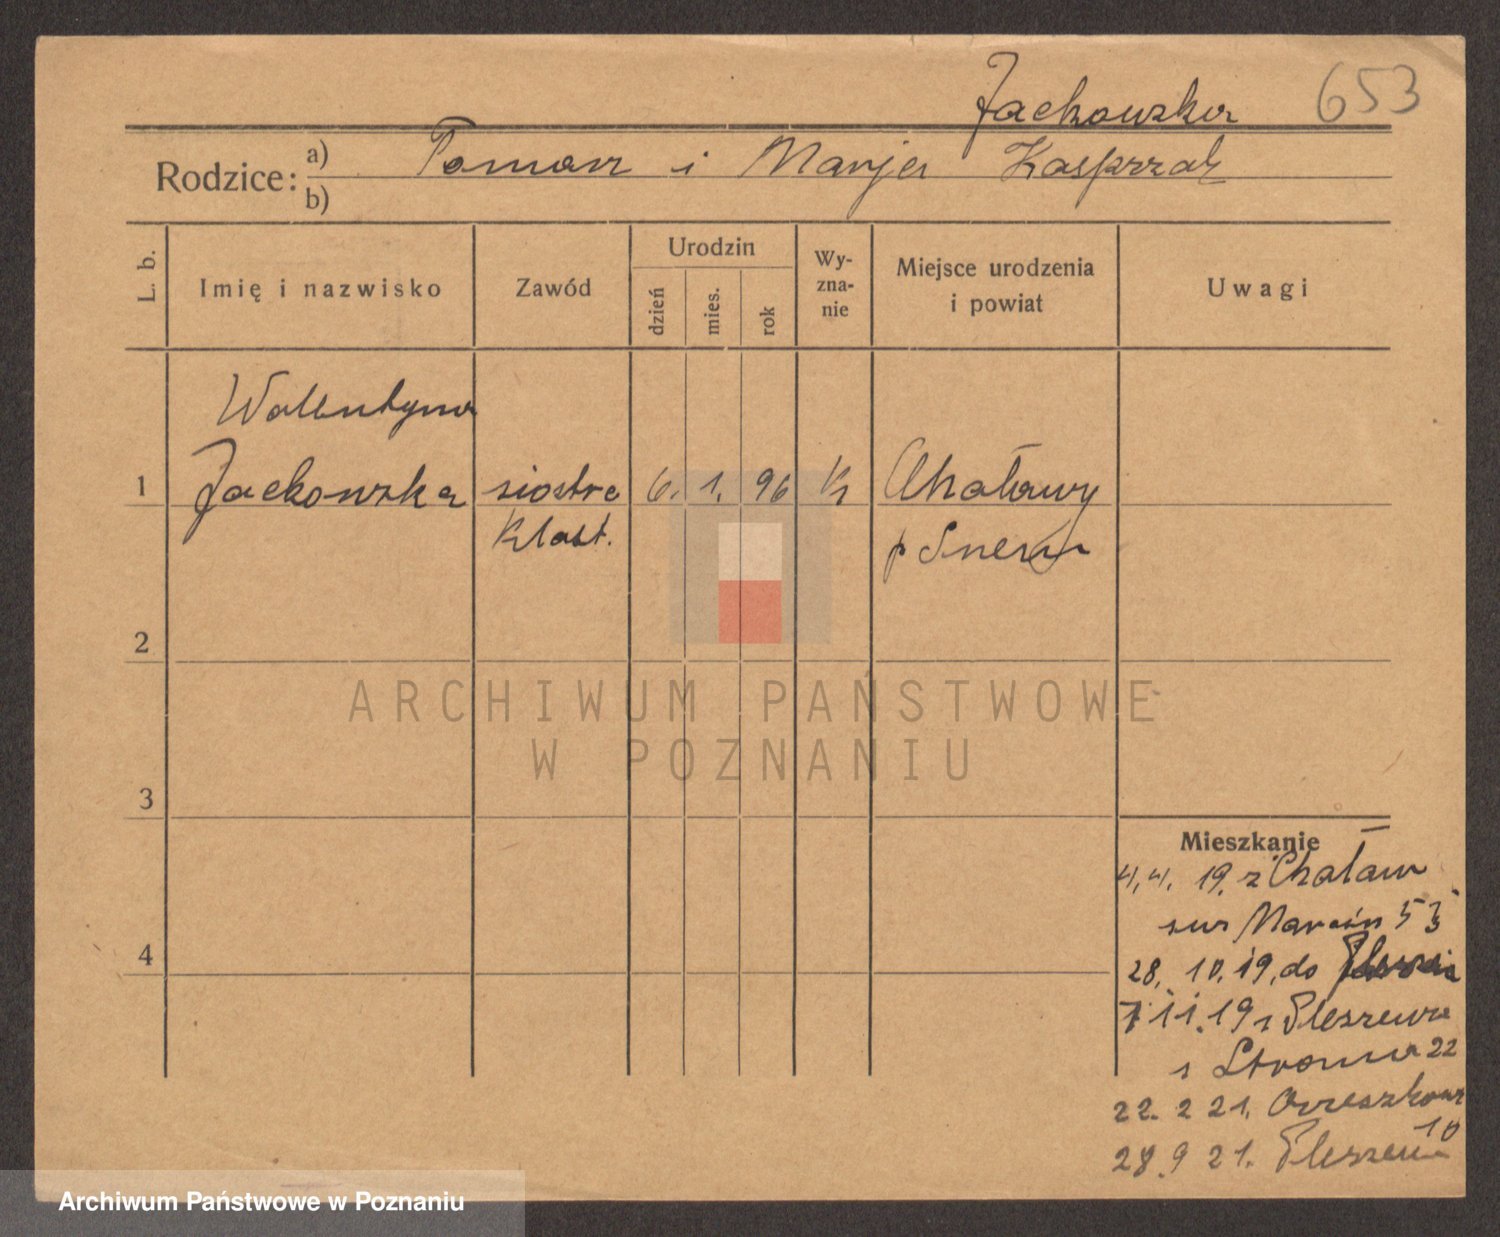 Jackowska 653
Rodzice: a) Tomasz i Marja Kasprzak
b)
L. b.
Imię i nazwisko
Zawód
Urodzin
dzień
mies.
rok
Wy-
zna-
nie
Miejsce urodzenia
i powiat
Uwagi
Walentyna
1 Jackowska siostra 6. 1. 96 k Chaławy
klast. p Śrem
2
ARCHIWUM PAŃSTWOWE
W POZNANIU
3
Mieszkanie
4. 4. 19. z Chaław
Marcin 53
4
28. 10. 19. do
7 11. 19 z Pleszewa
Stroma 22
22. 2 21. Orzeszkowa
10
28. 9 21. Pleszew
Archiwum Państwowe w Poznaniu